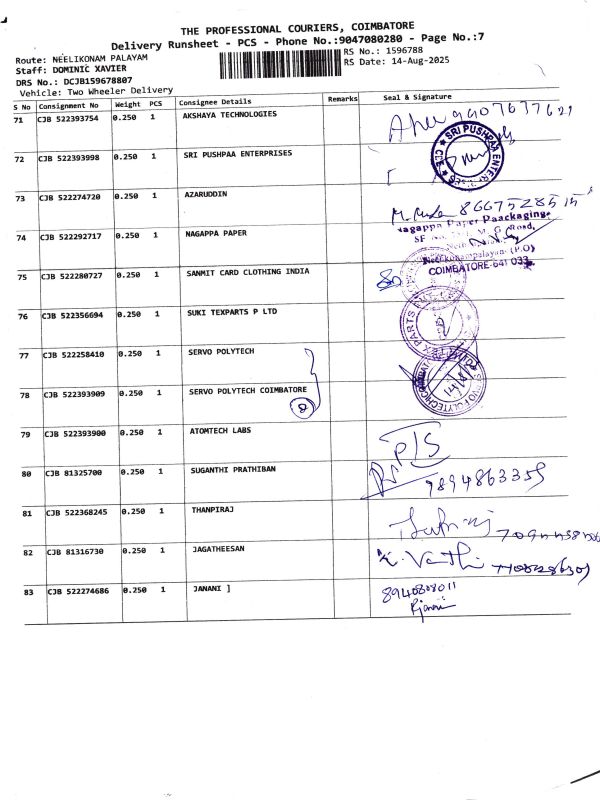 THE PROFESSIONAL COURIERS, COIMBATORE
Delivery Runsheet - PCS - Phone No.:9047080280 - Page No.:7
Route: NEELIKONAM PALAYAM
RS No.: 1596788
Staff: DOMINIC XAVIER
RS Date: 14-Aug-2025
DRS No.: DCJB159678807
Vehicle: Two Wheeler Delivery
S No Consignment No Weight PCS Consignee Details Remarks Seal & Signature
71 CJB 522393754 0.250 1 AKSHAYA TECHNOLOGIES
72 CJB 522393998 0.250 1 SRI PUSHPAA ENTERPRISES
SRI PUSHPAA
73 CJB 522274720 0.250 1 AZARUDDIN
74 CJB 522292717 0.250 1 NAGAPPA PAPER
Nagappa Paper Paackaging,
M. G. Road,
Neelikonampalayam (P.O)
COIMBATORE-641 033.
75 CJB 522280727 0.250 1 SANMIT CARD CLOTHING INDIA
76 CJB 522356694 0.250 1 SUKI TEXPARTS P LTD
77 CJB 522258410 0.250 1 SERVO POLYTECH
78 CJB 522393909 0.250 1 SERVO POLYTECH COIMBATORE
79 CJB 522393900 0.250 1 ATOMTECH LABS
80 CJB 81325700 0.250 1 SUGANTHI PRATHIBAN
9894863359
81 CJB 522368245 0.250 1 THANPIRAJ
82 CJB 81316730 0.250 1 JAGATHEESAN
83 CJB 522274686 0.250 1 JANANI ]
8940808011